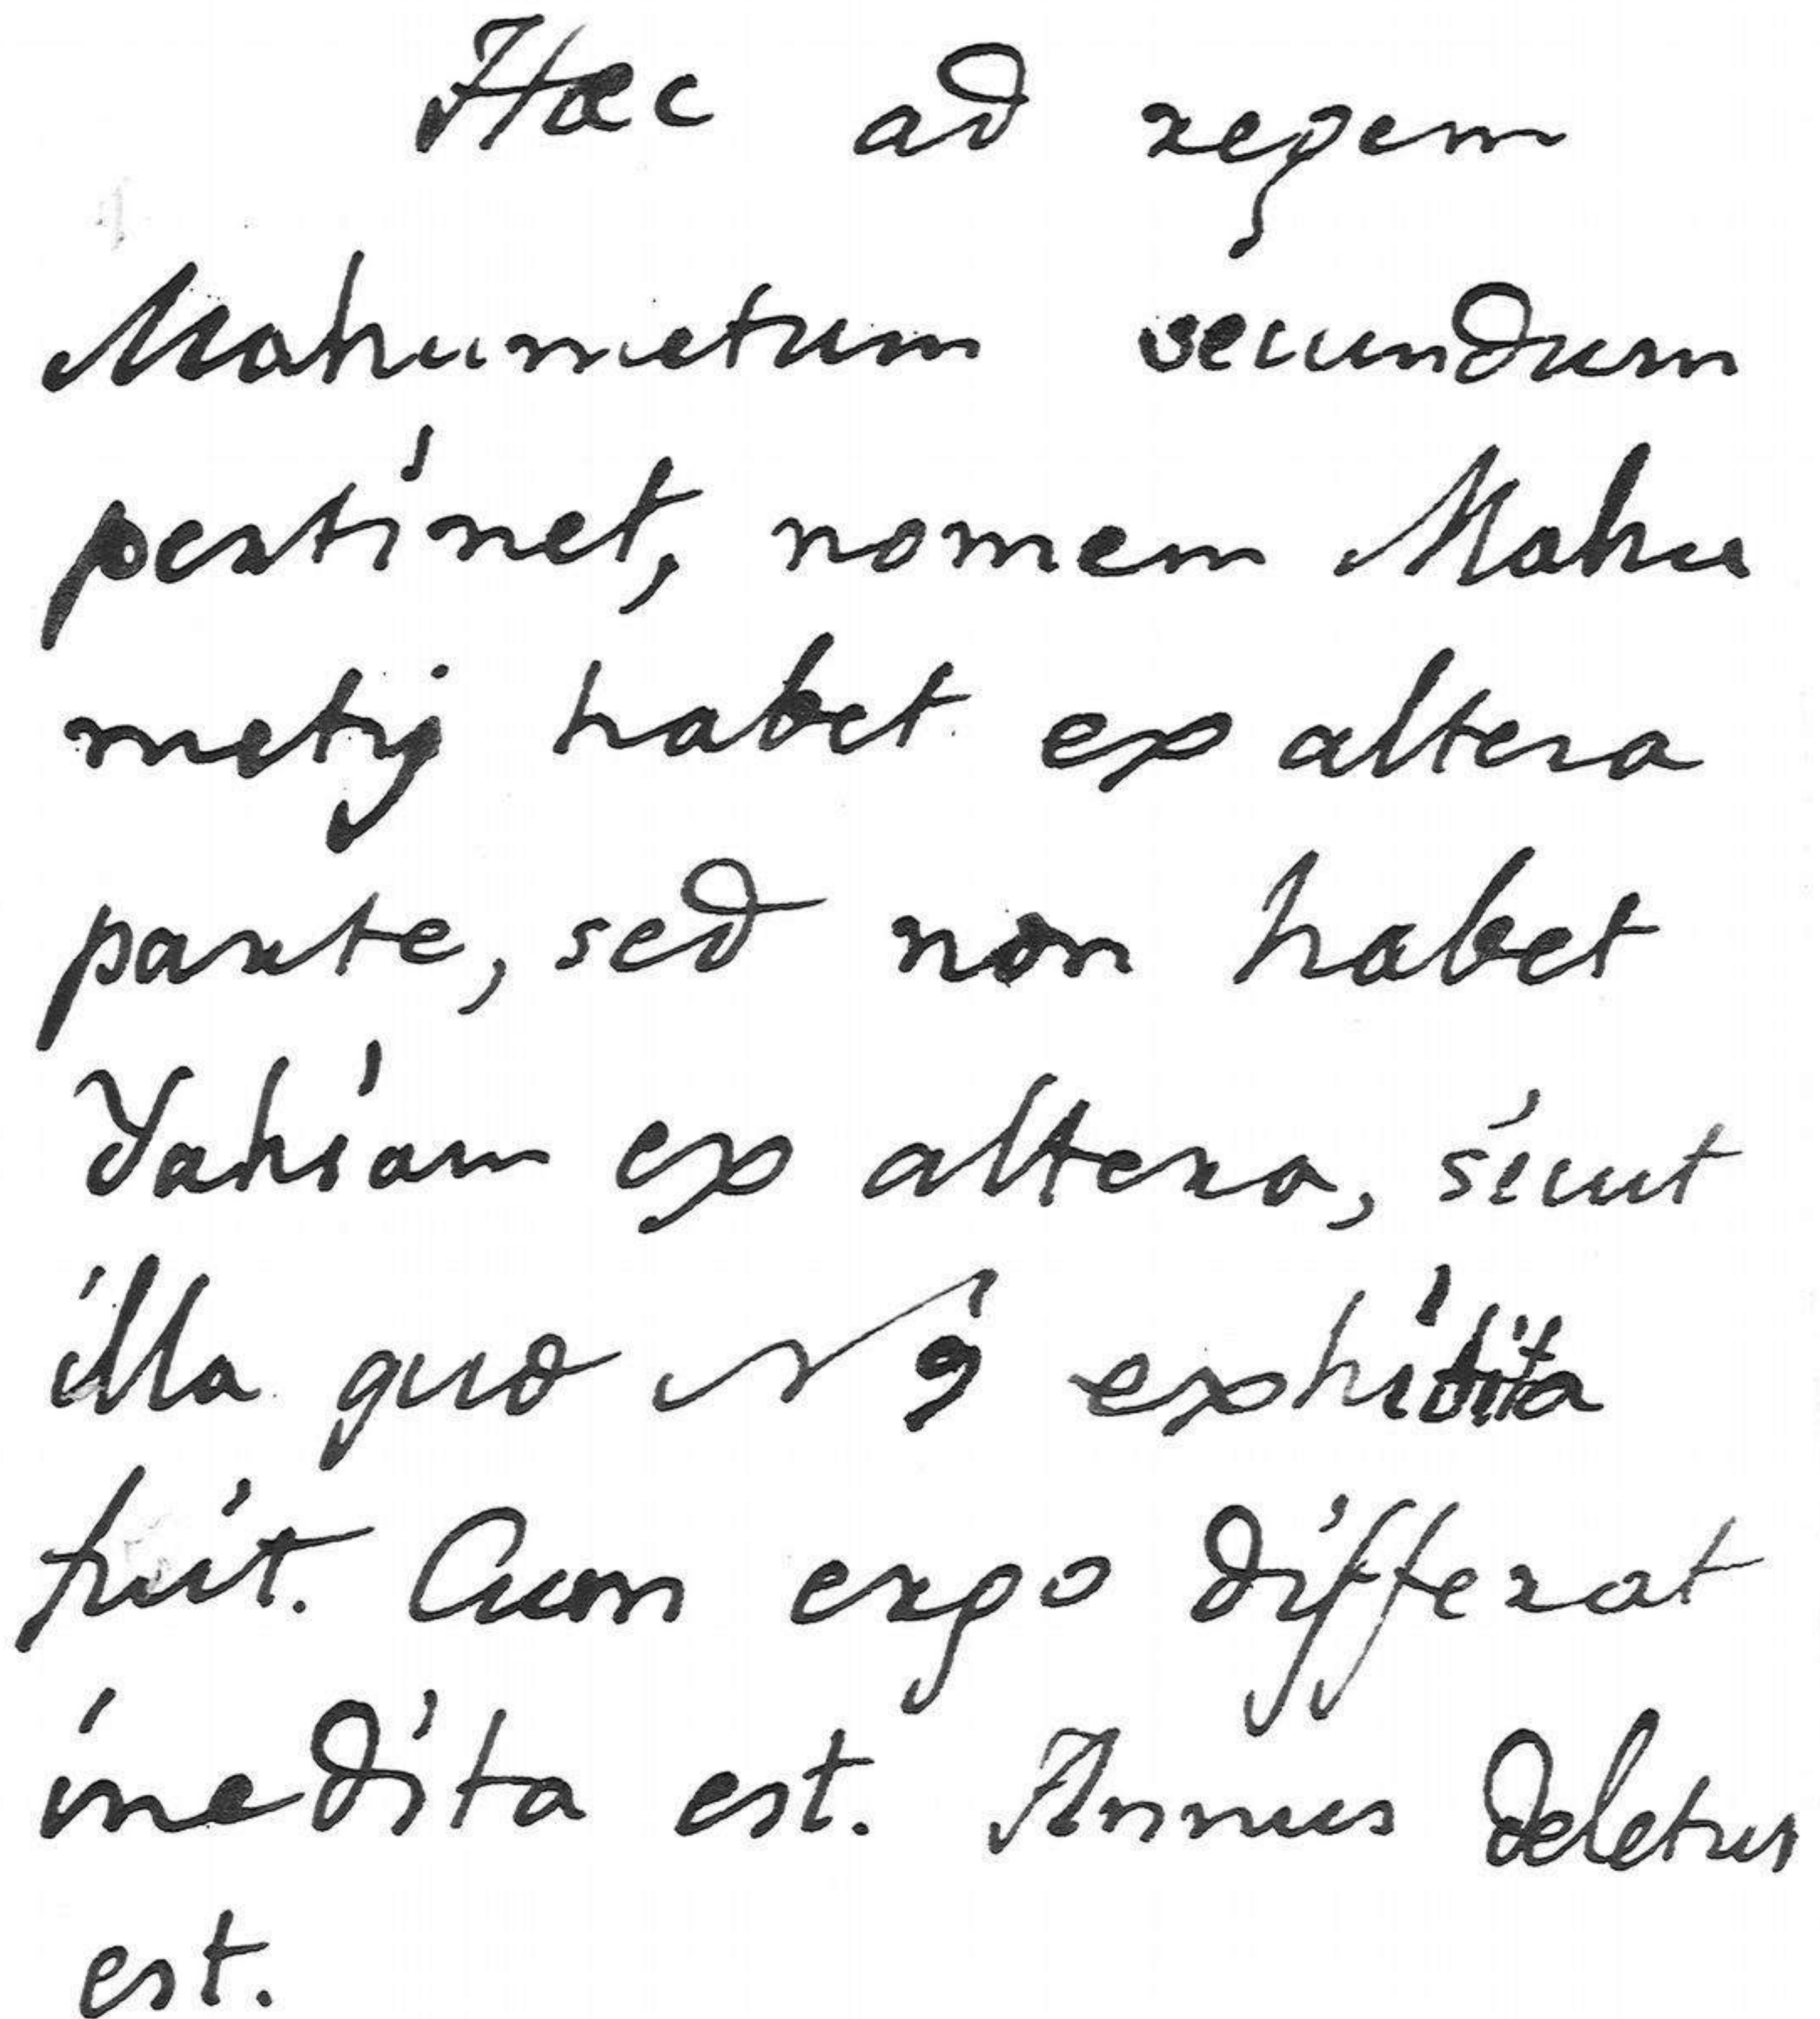 Hæc ad regem
Mahumetum secundum
pertinet, nomem Mahu
metij habet ex altera
parte, sed non habet
Yahiam ex altera, sicut
illa quæ N 9 exhibita
fuit. Cum ergo differat
inedita est. Annus deletus
est.